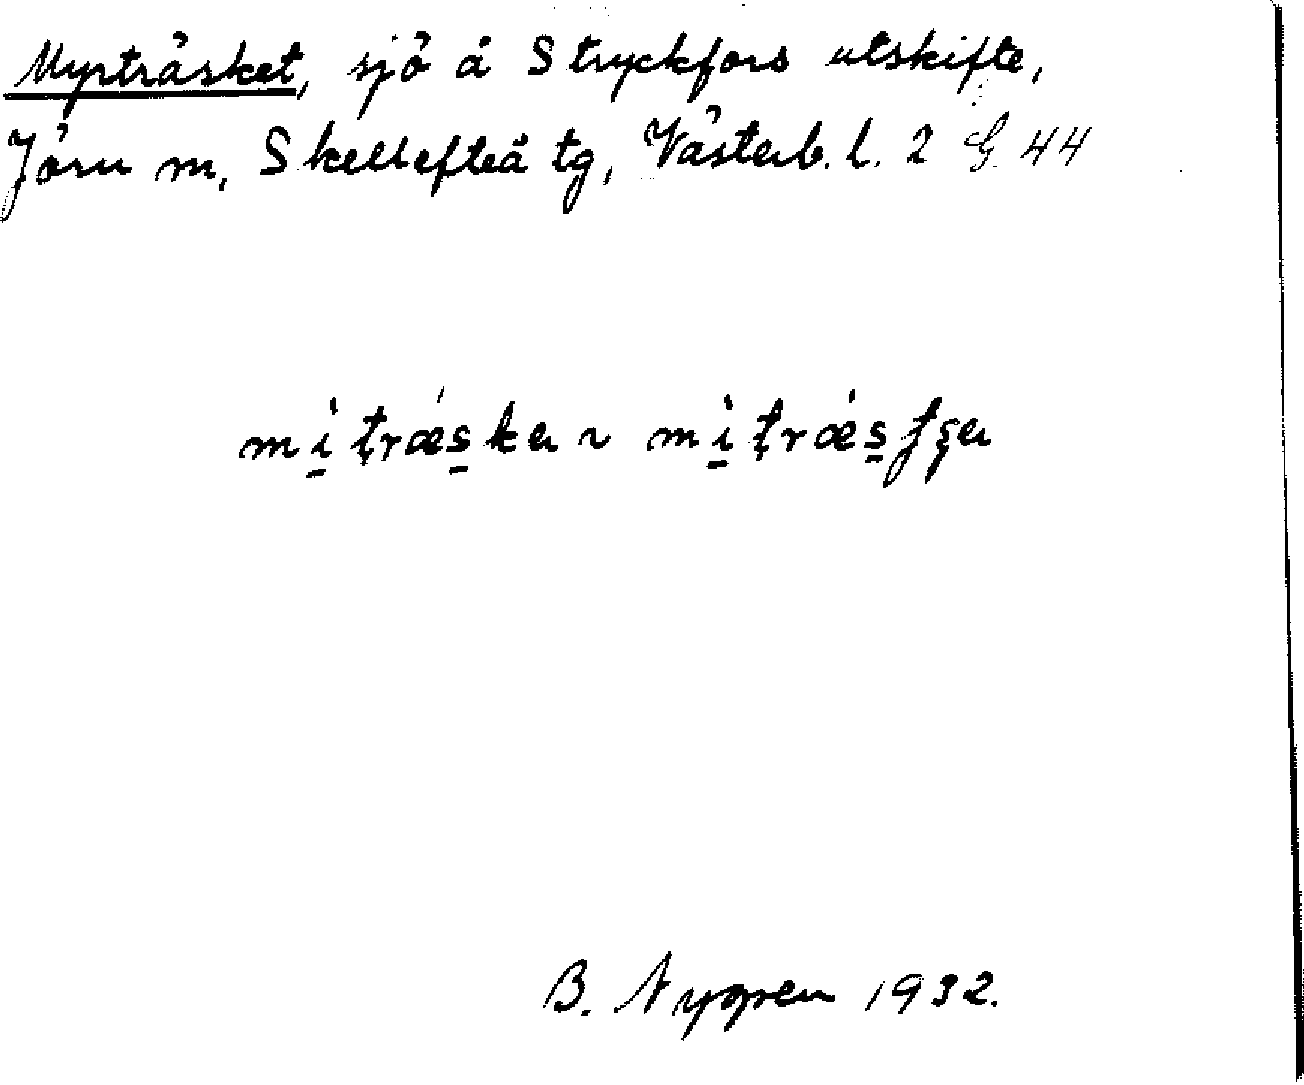 Myrträsket, sjö å Stryckfors utskifte,
Jörn m, Skellefteå tg, Västerb. l. 2 G 44
mì̱ trǽs̱ka ~ mì̱ trǽs̱
B. Nygren 1932.